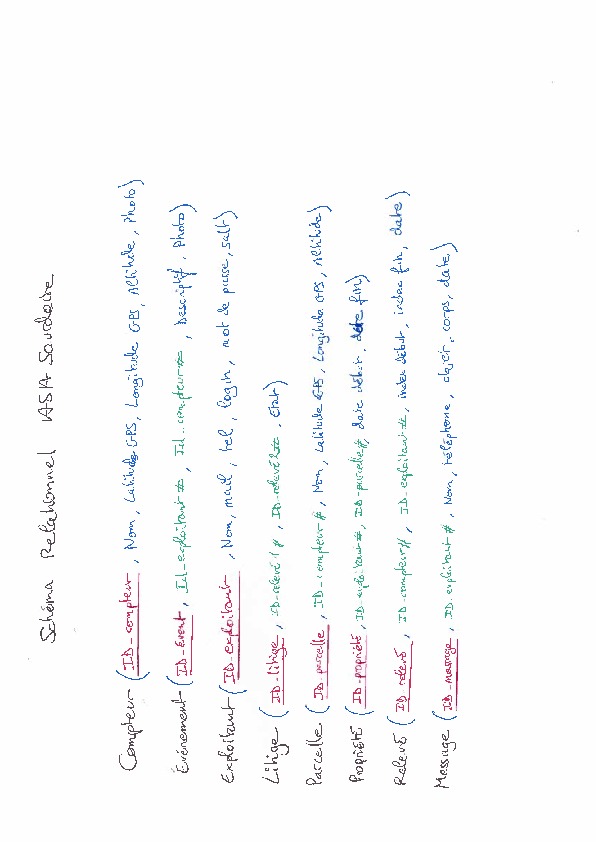 Schéma Relationnel ASA Sourdaire
Compteur (ID-compteur, Nom, Latitude GPS, Longitude GPS, Altitude, Photo)
Événement (ID-évent, Id-exploitant#, Id-compteur#, Descriptif, Photo)
Exploitant (ID-exploitant, Nom, mail, tel, login, mot de passe, salt)
Litige (ID-litige, ID-relevé1#, ID-relevé2#, État)
Parcelle (ID-parcelle, ID-compteur#, Nom, Latitude GPS, Longitude GPS, Altitude)
Propriété (ID-propriété, ID exploitant#, ID-parcelle#, date début, date fin)
Relevé (ID relevé, ID-compteur#, ID-exploitant#, index début, index fin, date)
Message (ID-message, ID.exploitant#, Nom, téléphone, corps, date)